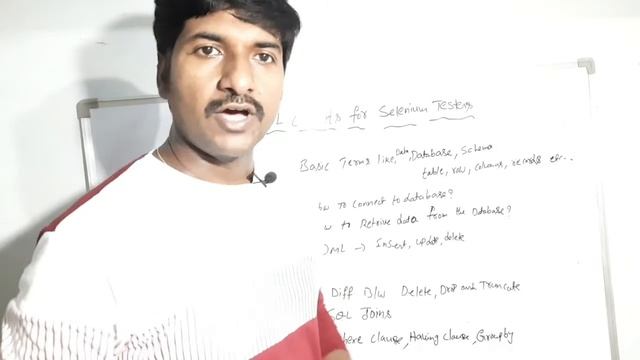 for Selenium Testers
Basic Terms like, Data, Database, Schema
table, row, columns, records etc..
To connect to database?
To Retrive data from the Database?
DML → Insert, update, delete
Diff B/w Delete, Drop and Truncate
SQL Joins
where clause, Having clause, Groupby